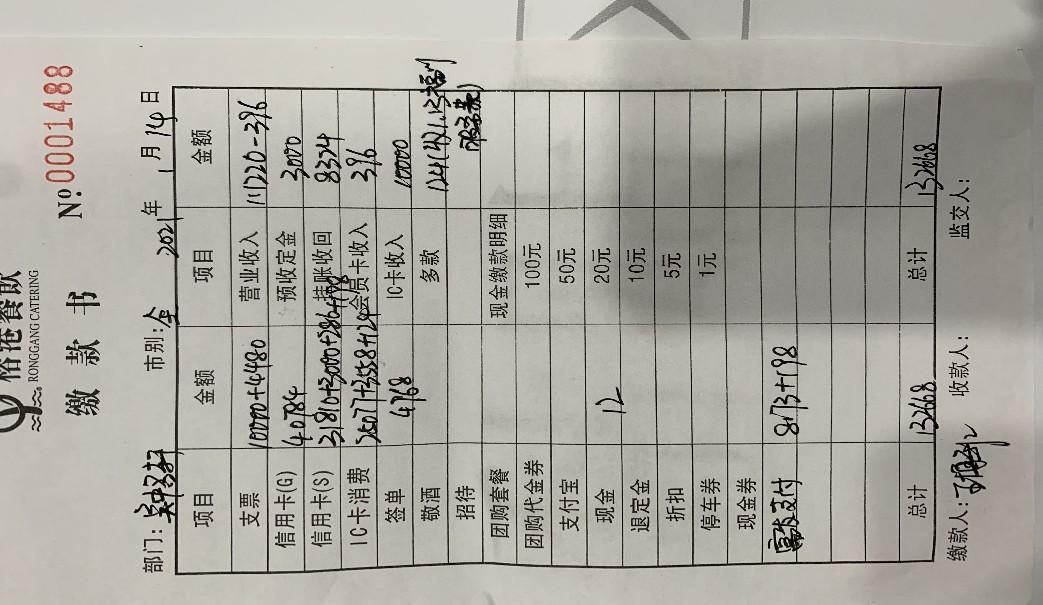 餐飲
RONGGANG CATERING
缴款书
№ 0001488
部门: 市别:全 2021年1月14日
项目 金额 项目 金额
支票 10000+4480 营业收入 111220-396
信用卡(G) 40784 预收定金 3000
信用卡(S) 挂账收回 8324
IC卡消费 会员卡收入 396
签单 4768 IC卡收入 10000
敬酒 多款
招待
团购套餐 现金缴款明细
团购代金券 100元
支付宝 50元
现金 12 20元
退定金 10元
折扣 5元
停车券 1元
现金券
支付 8173+198
总计 132668 总计 132668
缴款人: 收款人: 监交人: